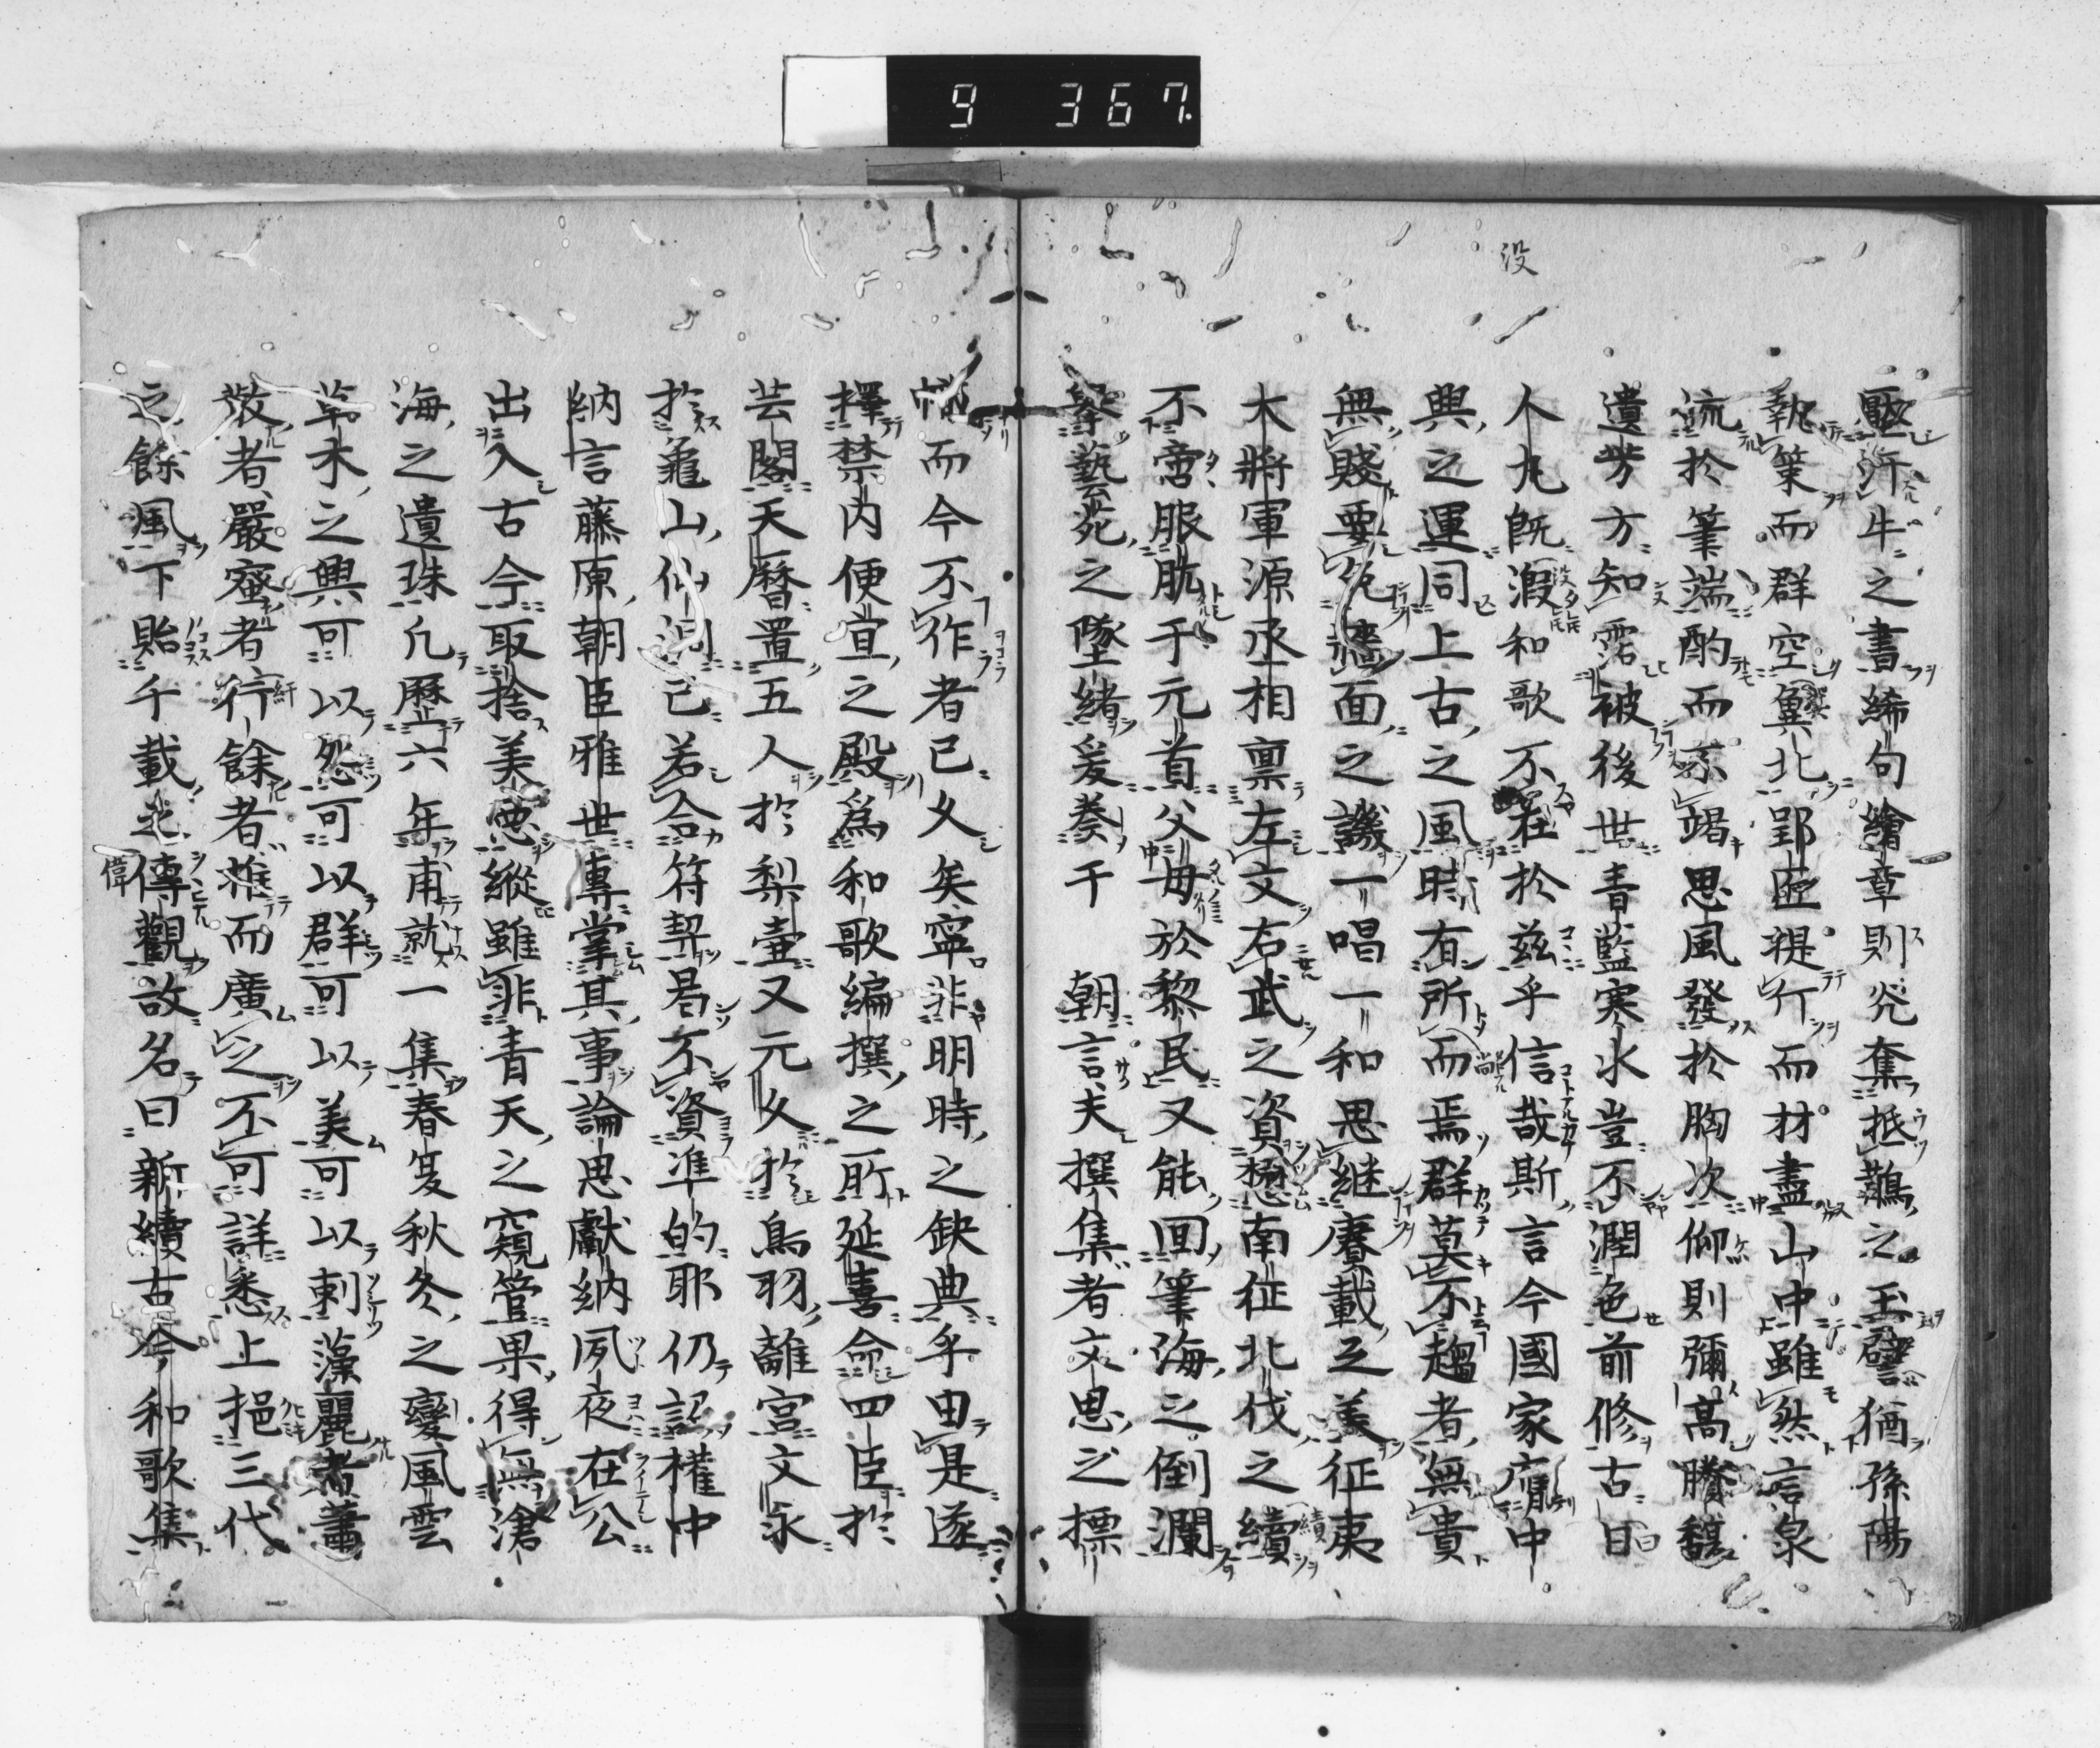 9 367.
没
驅汗牛之書絺句繪章則欲奪抵鵲之玉譬猶孫陽
執策而群空冀北郢匠提斤而材盡山中雖然言泉
流於筆端酌而不竭思風發於胸次仰則彌高騰馥
遺芳方知霑被後世青藍寒氷豈不潤色前修古曰
人丸既没和歌不在於玆乎信哉斯言今國家膺中
興之運同上古之風時有所尚焉群莫不趨者無貴
無賤要免墻面之譏一唱一和思継賡載之美征夷
大將軍源丞相禀左文右武之資懋南征北伐之績
不啻服肱于元首父母於黎民又能回筆海之倒瀾
擧藝苑之墜緒爰奏于 朝言夫撰集者文思之標
幟而今不作者已久矣寧非明時之缺典乎由是遂
擇禁内便宜之殿爲和歌編撰之所延喜命四臣於
芸閣天暦置五人於梨壷又元久於鳥羽離宮文永
於龜山仙洞已若合符契曷不資準的耶仍詔權中
納言藤原朝臣雅世專掌其事論思獻納夙夜在公
出入古今取捨美悪縱雖非青天之窺管果得無滄
海之遺珠凢歴六年甫就一集春夏秋冬之變風雲
草木之興可以怨可以群可以美可以刺藻麗者蕭
散者嚴密者行餘者推而廣之不可詳悉上挹三代
之餘風下貽千載之偉觀故名曰新續古今和歌集